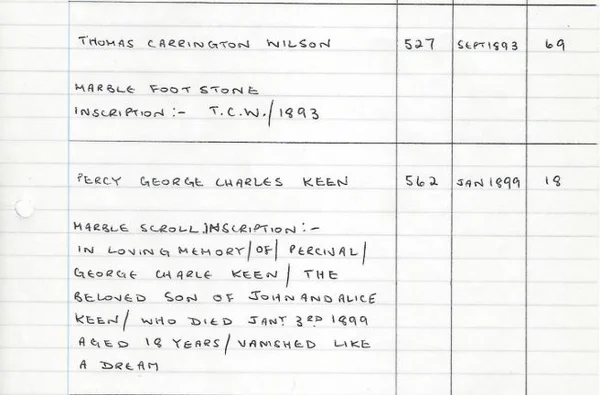 THOMAS CARRINGTON WILSON 527 SEPT 1893 69
MARBLE FOOT STONE
INSCRIPTION :- T.C.W./1893
PERCY GEORGE CHARLES KEEN 562 JAN 1899 18
MARBLE SCROLL.INSCRIPTION :-
IN LOVING MEMORY/OF/PERCIVAL/
GEORGE CHARLE KEEN/ THE
BELOVED SON OF JOHN AND ALICE
KEEN/ WHO DIED JANY 3RD 1899
AGED 18 YEARS/VANISHED LIKE
A DREAM